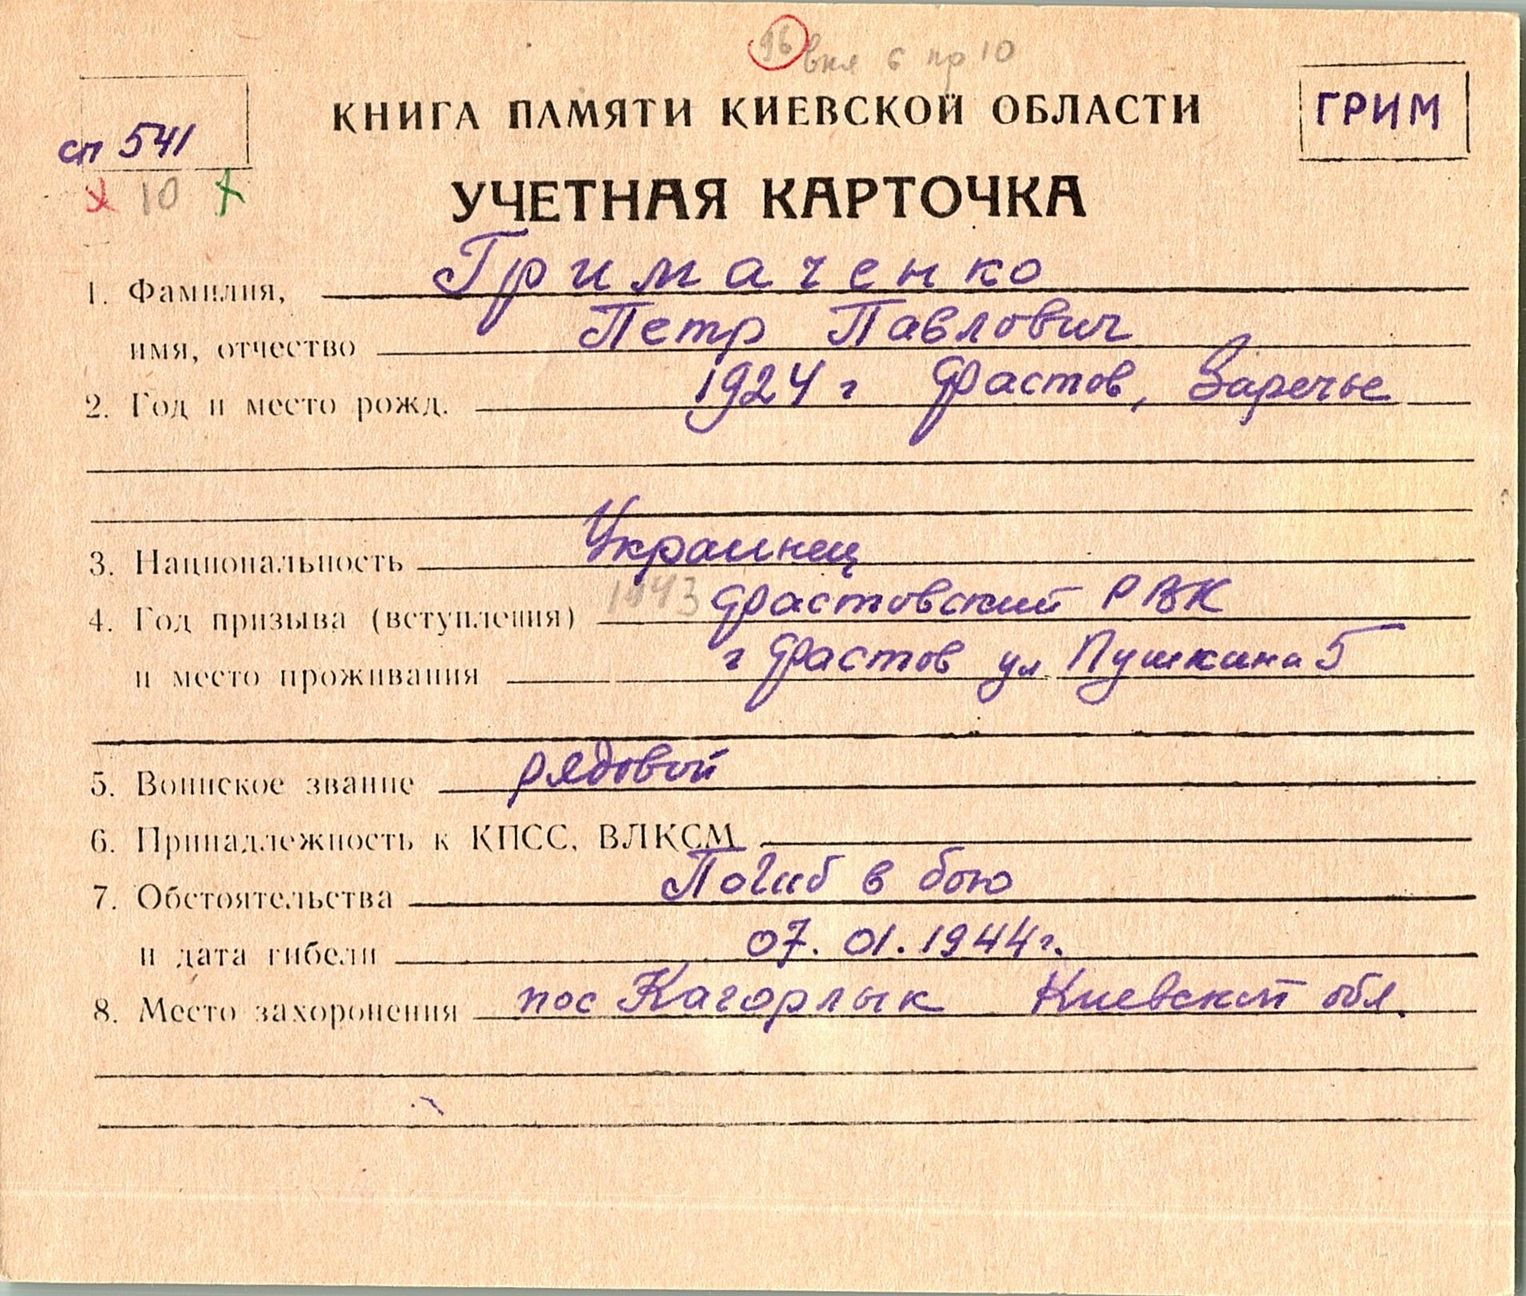 96 вкл 6 пр 10
КНИГА ПАМЯТИ КИЕВСКОЙ ОБЛАСТИ
ГРИМ
сп 541
10
УЧЕТНАЯ КАРТОЧКА
1. Фамилия, Гримаченко
имя, отчество Петр Павлович
2. Год и место рожд. 1924 г Фастов, Заречье
3. Национальность Украинец
4. Год призыва (вступления) 1943 Фастовский РВК
и место проживания г Фастов ул Пушкина 5
5. Воинское звание рядовой
6. Принадлежность к КПСС, ВЛКСМ
7. Обстоятельства Погиб в бою
и дата гибели 07.01.1944г.
8. Место захоронения пос Кагорлык Киевской обл.